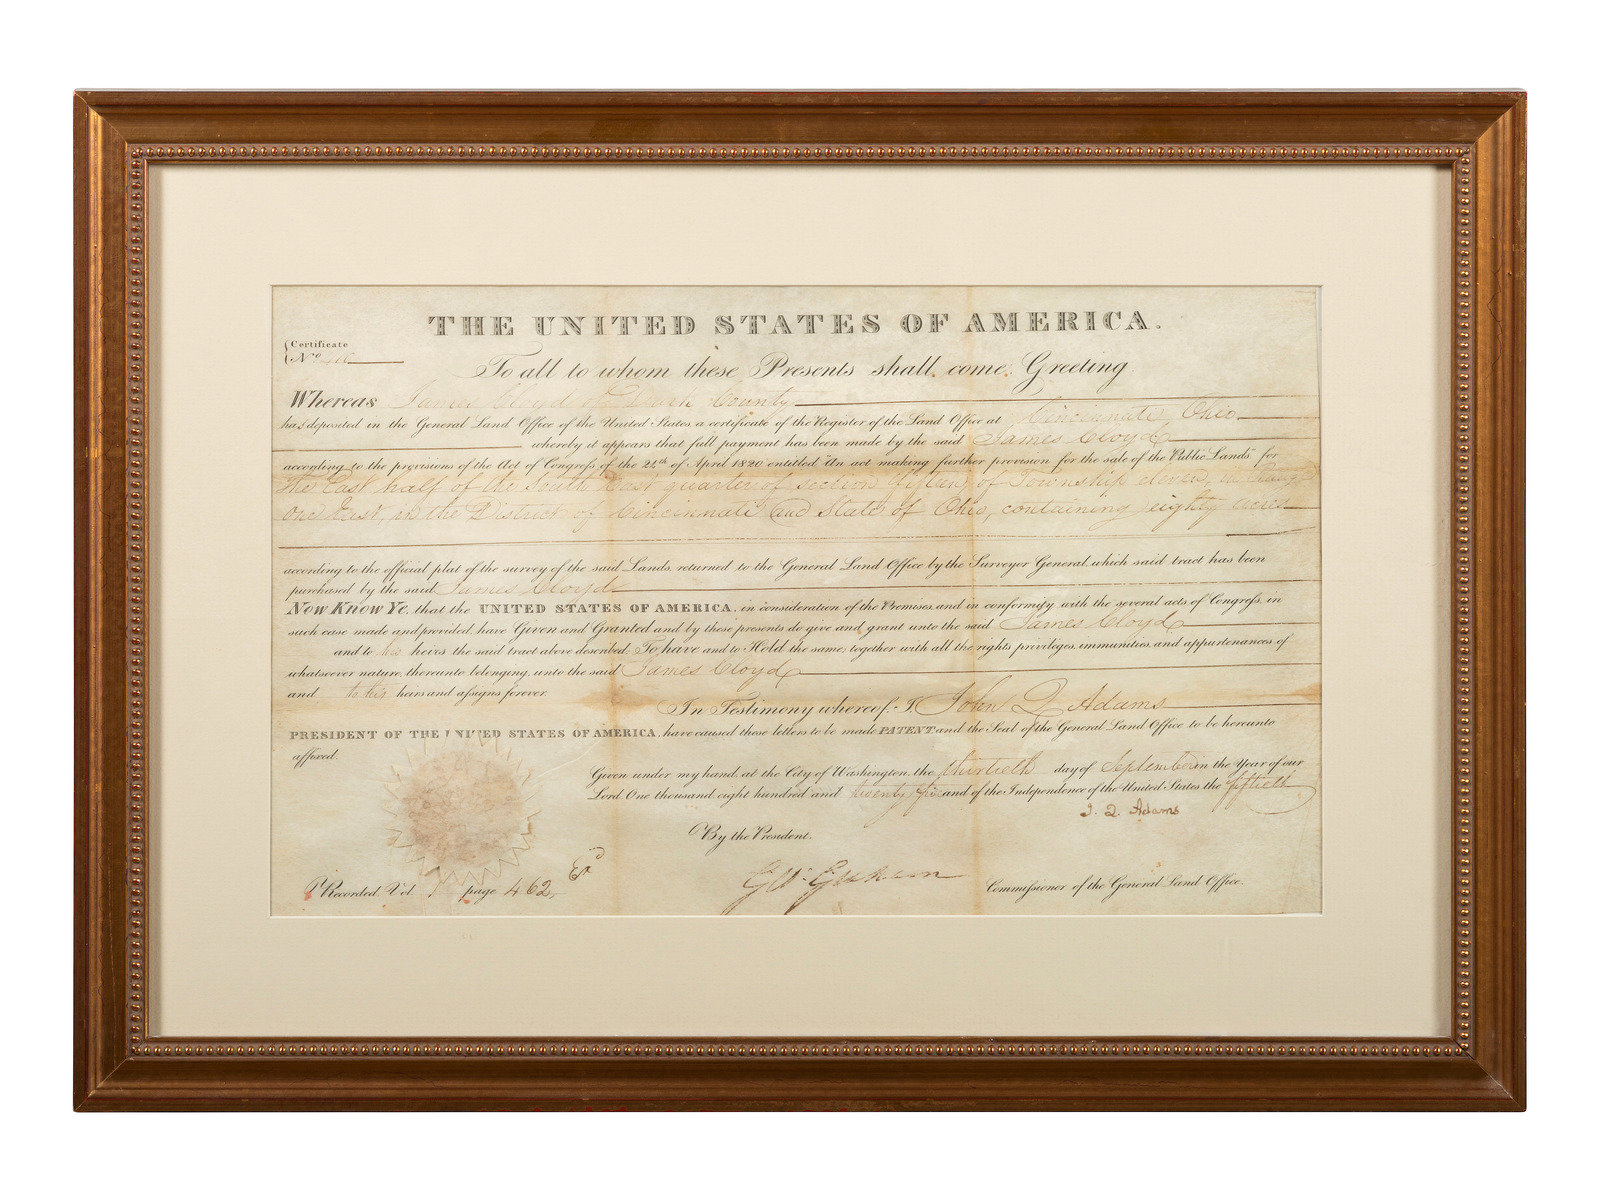 THE UNITED STATES OF AMERICA.
Certificate
No
To all to whom these Presents shall come, Greeting
Whereas James Cloyd of County
has deposited in the General Land Office of the United States a certificate of the Register of the Land Office at Cincinnati Ohio
whereby it appears that full payment has been made by the said James Cloyd
according to the provisions of the Act of Congress of the 24th of April 1820 entitled "An act making further provision for the sale of the Public Lands" for
the East half of the South East quarter of section fifteen of Township eleven, in Range
one East, in the District of Cincinnati and State of Ohio, containing eighty acres
according to the official plat of the survey of the said Lands, returned to the General Land Office by the Surveyor General, which said tract has been
purchased by the said James Cloyd
Now Know Ye, that the UNITED STATES OF AMERICA, in consideration of the Premises, and in conformity with the several acts of Congress, in
such case made and provided, have Given and Granted and by these presents do give and grant unto the said James Cloyd
and to his heirs the said tract above described: To have and to Hold the same, together with all the rights, privileges, immunities, and appurtenances of
whatsoever nature, thereunto belonging, unto the said James Cloyd
and to his heirs and assigns forever.
In Testimony whereof, I, John Q Adams
PRESIDENT OF THE UNITED STATES OF AMERICA, have caused these letters to be made PATENT and the Seal of the General Land Office to be hereunto
affixed.
Given under my hand, at the City of Washington, the thirtieth day of September in the Year of our
Lord One thousand eight hundred and twenty five and of the Independence of the United States the fiftieth
J. Q. Adams
By the President.
Recorded, Vol page 462, Exd
Commissioner of the General Land Office.